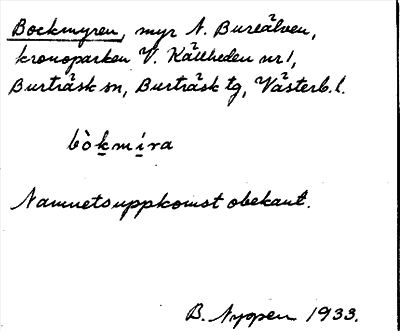 Bockmyren, myr N. Bureälven,
kronoparken V. Källheden nr 1,
Burträsk sn, Burträsk tg, Västerb. l.
bòk̲mi̲ra
Namnets uppkomst obekant.
B. Nyppen 1933.